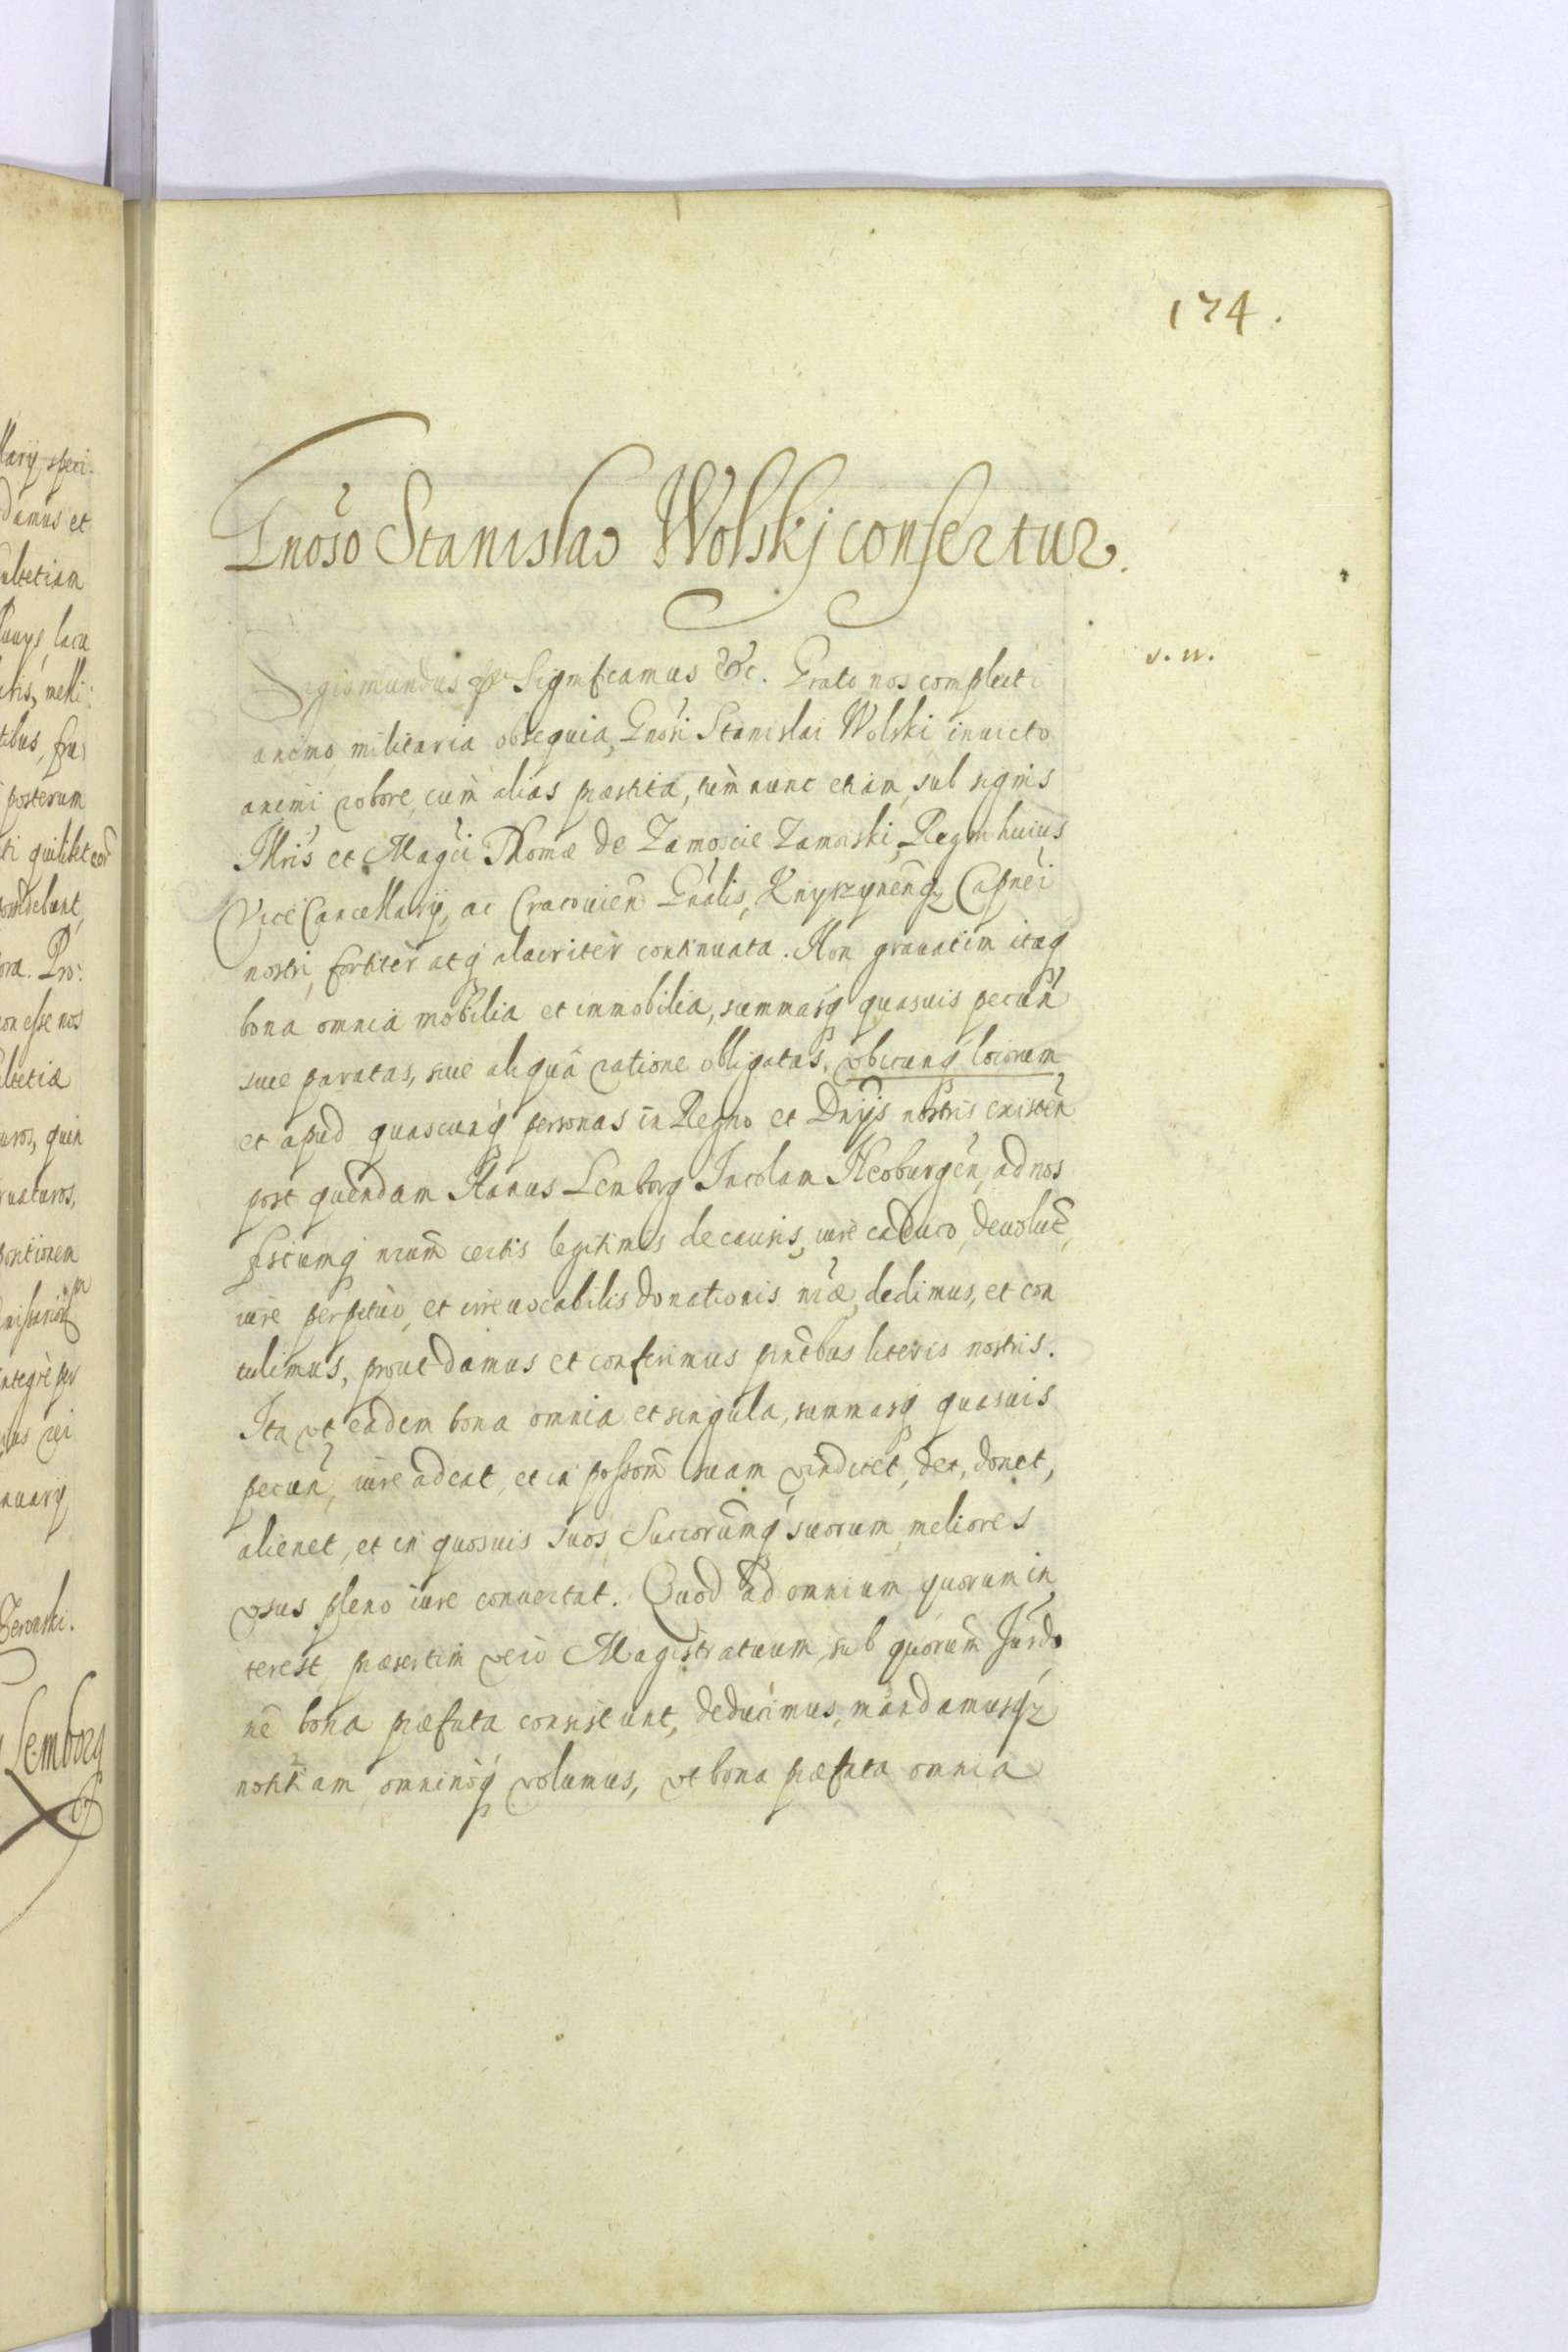 174.
Gnoso Stanislao Wolskj confertur.
Sigismundus Significamus &c. Grato nos complecti
s. n.
animo militaria obsequia, Gnosi Stanislai Wolski, inuicto
animi robore, cum alias præstita, tum nunc etiam, sub signis
Illris et Magci Thomæ de Zamoscie Zamoiski, Regni huius
Vice Cancellarij, ac Cracouien Gnalis, Knyszynenq Capnei
nostri, fortiter atq alacriter continuata. Non grauatim itaq
bona omnia mobilia et immobilia, summasq quasuis pecun
siue paratas, siue aliqua ratione obligatas, vbicunq locorum
et apud quascunq personas in Regno et Dnijs nostris existen
post quendam Hanus Lemborg Incolam Neoburgen, ad nos
fiscumq nrum certis legitimis de causis, iure caduco, deuolut,
iure perpetuo, et irreuocabilis donationis nræ, dedimus, et con
tulimus, prout damus et conferimus pntbus literis nostris.
Ita vt eadem bona omnia et singula, summasq quasuis
pecun, iure adeat, et in possom suam vindicet, det, donet,
alienet, et in quosuis suos, Succorumq suorum, meliores
vsus pleno iure conuertat. Quod ad omnium quorum in
terest, præsertim vero Magistratuum, sub quorum Jurdo
ne bona præfata consistunt, deducimus, mandamusqz
notitiam, omninoq volumus, vt bona præfata omnia
larij speri.
damus et
ultetiam
posterum
ora. Pro:
on esse nos
ultetiæ
uros, quin
ruaturos,
nuarij
Lemborg